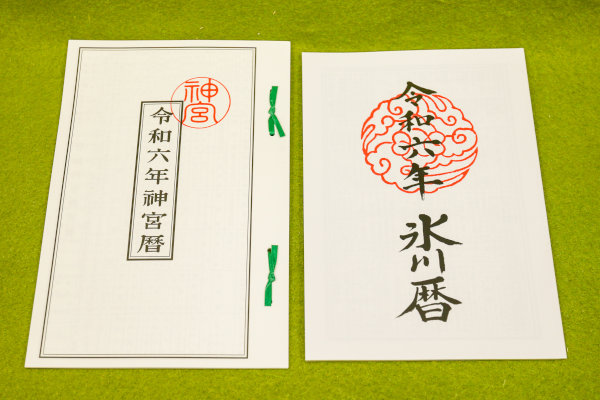 神宮
令和六年神宮暦
令和六年
氷川暦